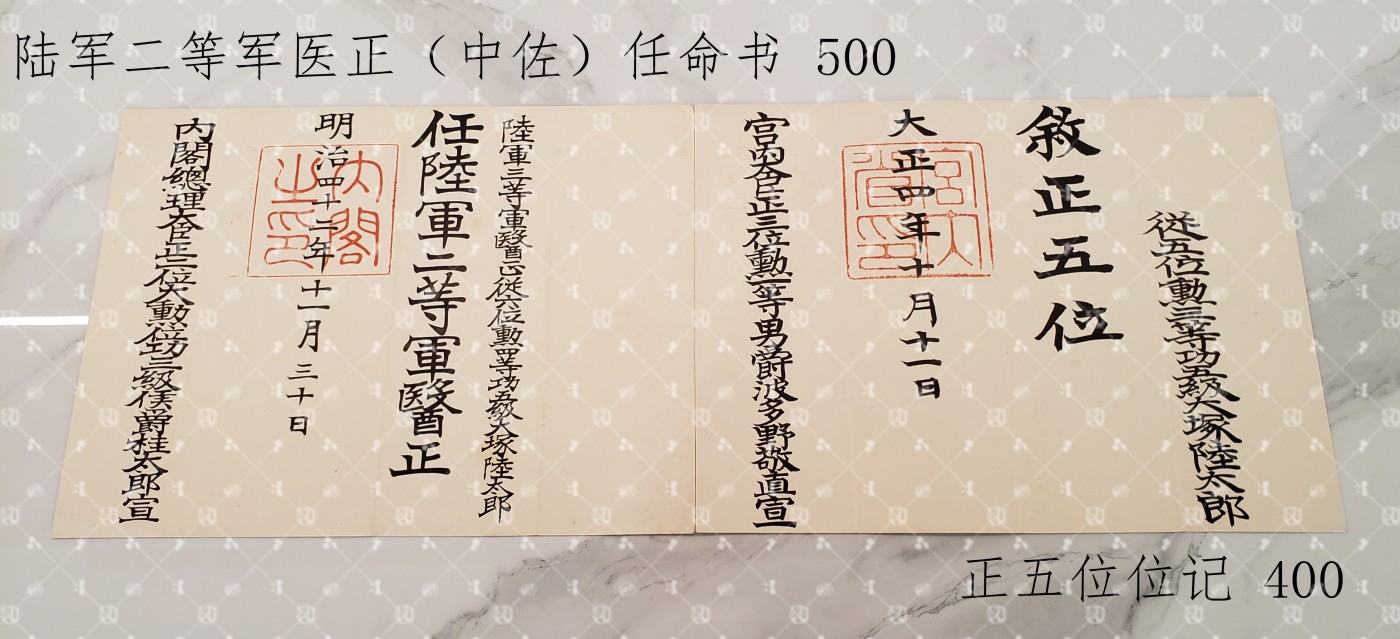 陆军二等军医正（中佐）任命书 500
從五位勳三等功五級大塚陸太郎
敘正五位
大正四年十月十一日
宮内省印
宮内大臣正三位勳一等男爵波多野敬直宣
陸軍三等軍醫正從六位勳四等功五級大塚陸太郎
任陸軍二等軍醫正
明治四十二年十一月三十日
内閣之印
内閣總理大臣正二位大勳位功三級侯爵桂太郎宣
正五位位记 400